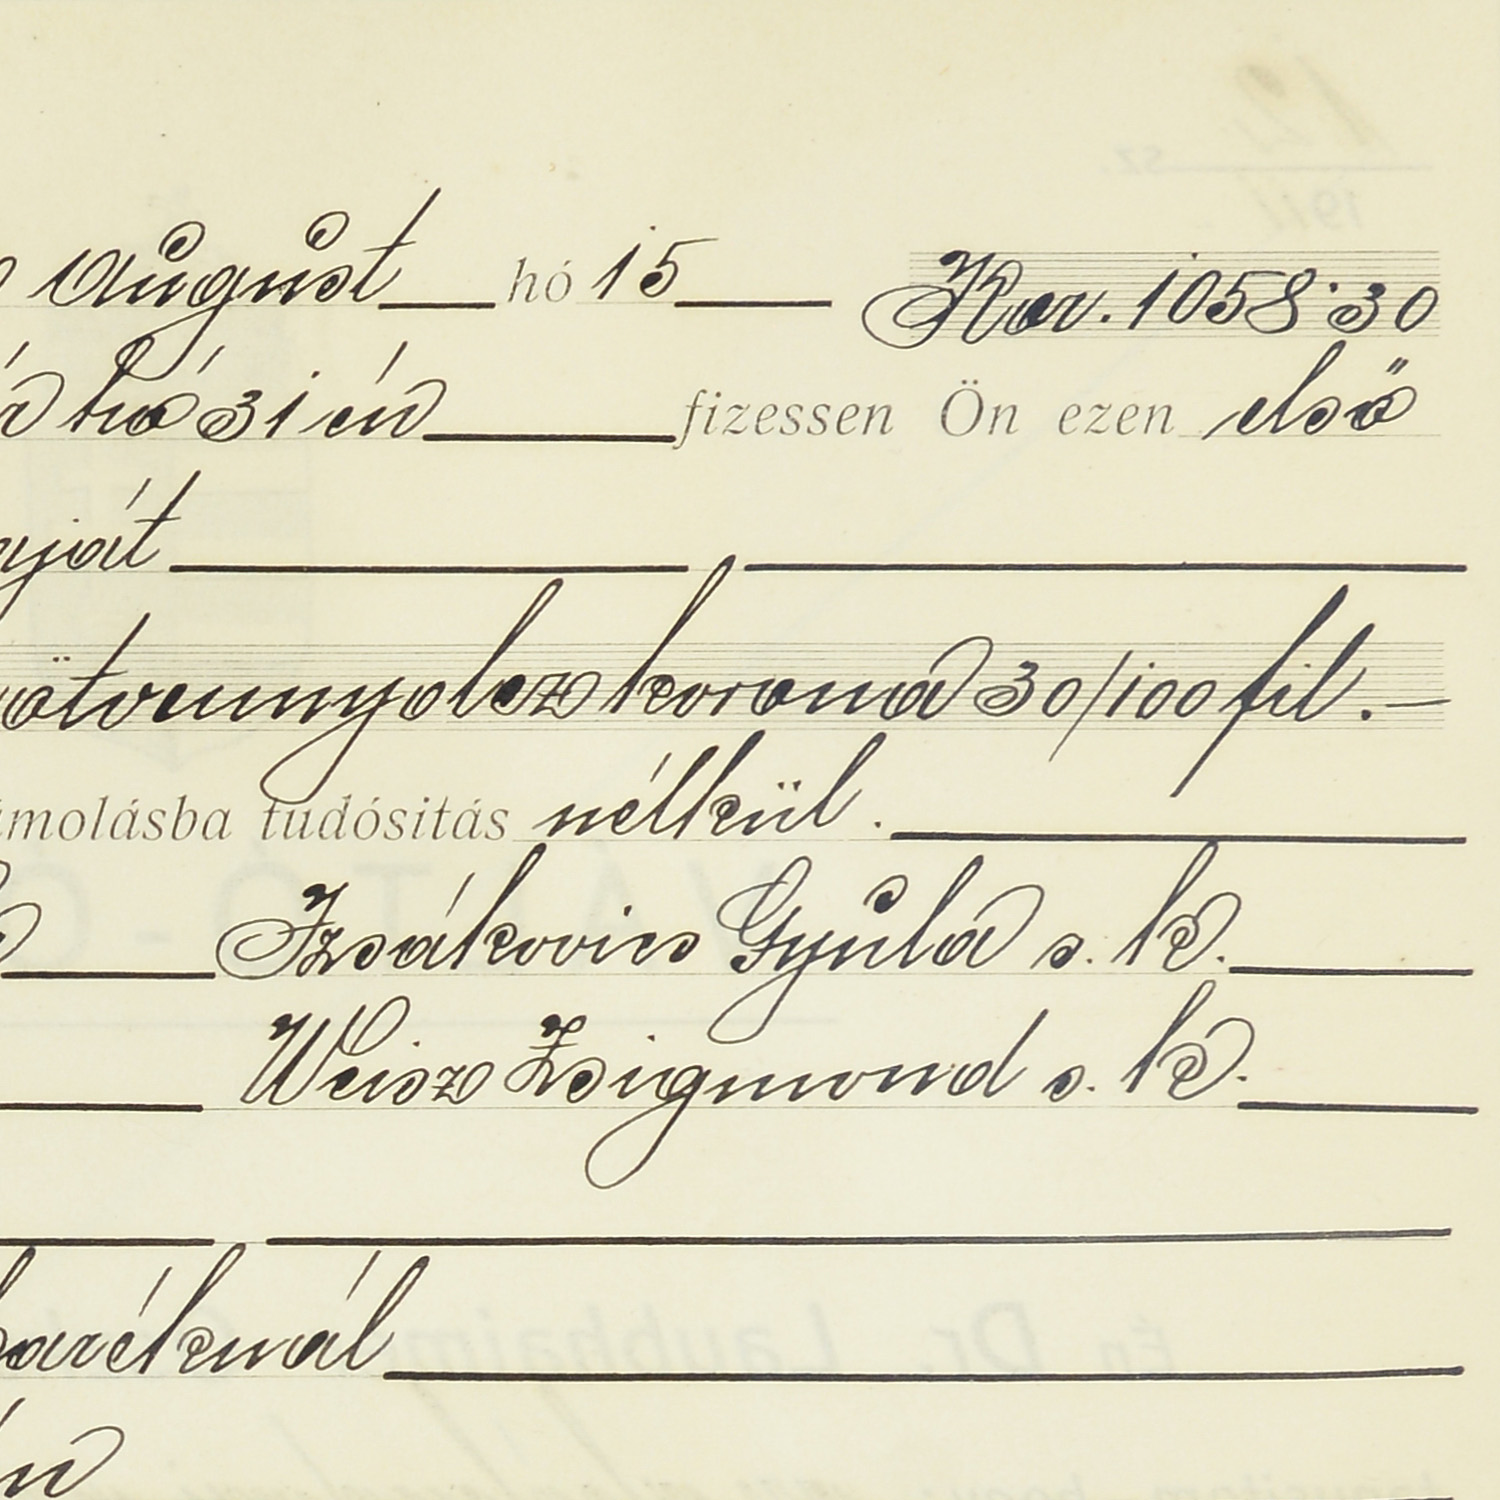 August hó 15 Kor. 1058·30
hó 31 én fizessen Ön ezen első
ját
ötvennyolcz korona 30/100 fil.—
ámolásba tudósitás nélkül.
Izsákovics Gyula s. k.
Weisz Zsigmond s. k.
Én Dr. Laubhaim